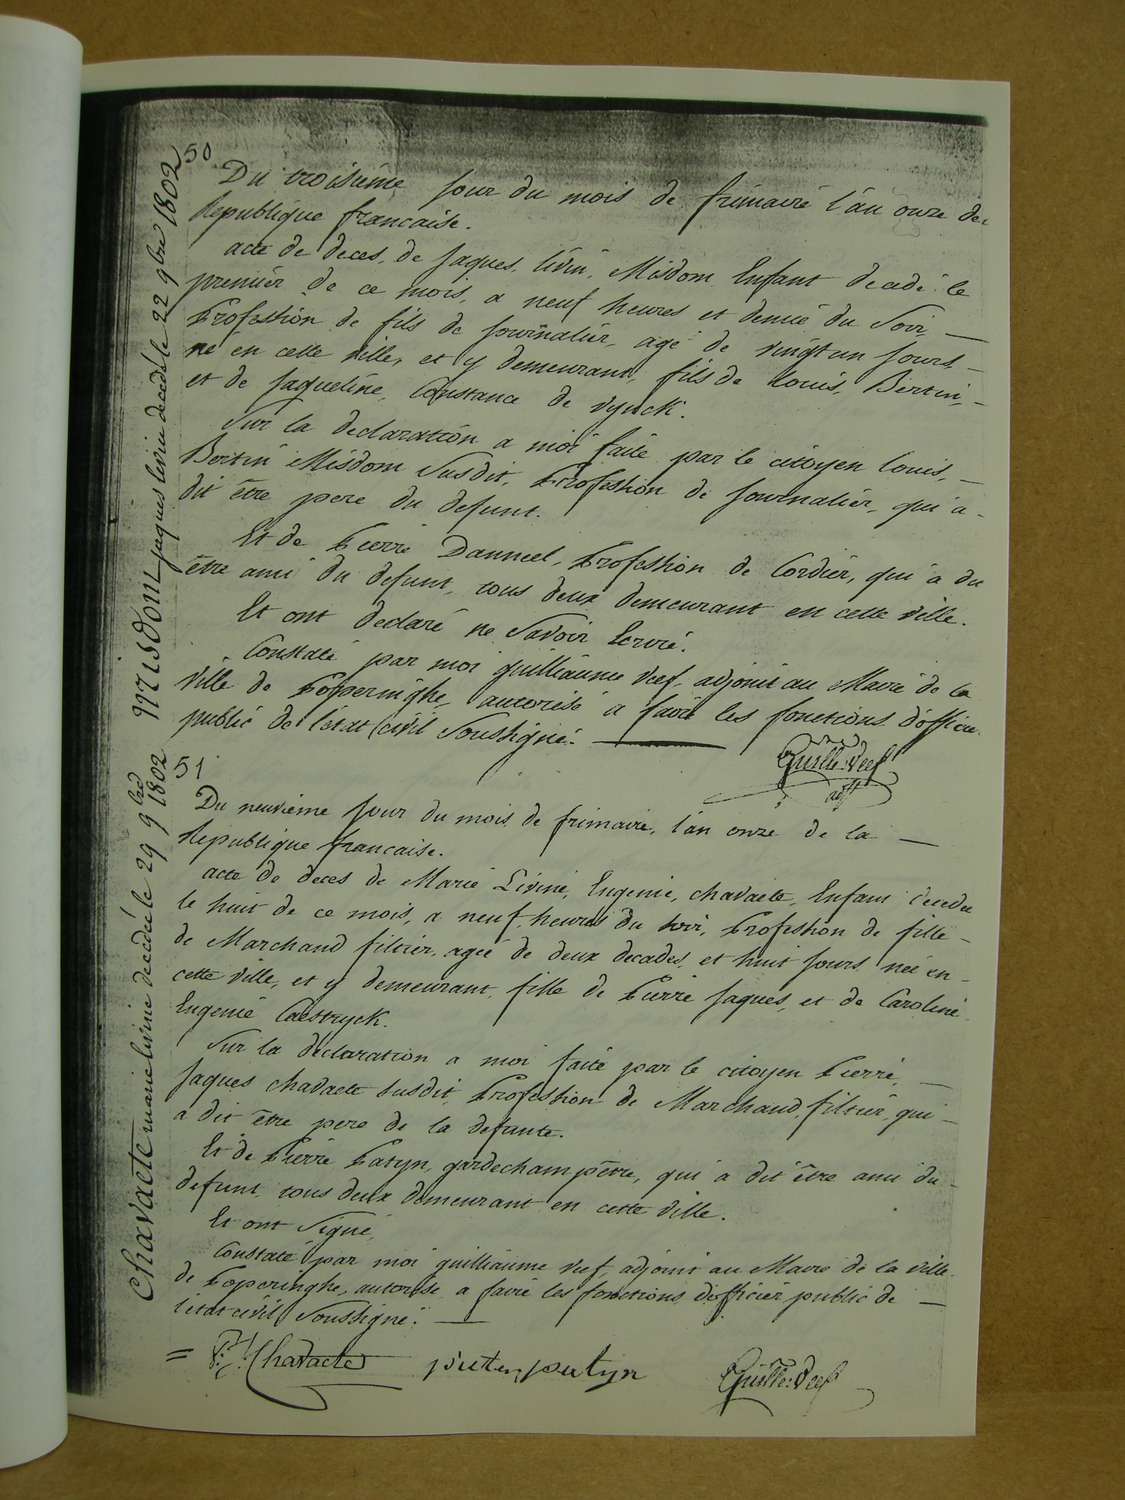 50
Du troisième jour du mois de frimaire l'an onze de
Republique francaise.
acte de deces, de Jaques, livin, Misdom Enfant decadé le
premier de ce mois, a neuf heures et demie du soir —
Profession de fils de journalier, agé de vingtun jours —
né en cette ville, et y demeurant, fils de Louis, Bertin, —
et de Jaqueline, Constance de vynck.
Sur la declaration a moi faite par le citoyen Louis, —
Bertin Misdom Susdit, Profession de journalier, qui a -
dit être pere du defunt.
Et de Pierre Danneel, Profession de Cordier, qui a du
être ami du defunt, tous deux demeurant en cette ville.
Et ont declaré ne Savoir Ecrire.
Constaté par moi guilliaume Vef, adjoint au Maire de la
ville de Poperinghe, autorisé a faire les fonctions d'officier
public de l'état civil Soussigné. —
Guille: Vef
adjt
51
Du neuvième jour du mois de frimaire, l'an onze de la —
Republique francaise.
acte de deces de Marie Livine, Eugenie, chavaete, Enfant decedee
le huit de ce mois, a neuf heures du soir, Profession de fille -
de Marchand filtier, agée de deux decades, et huit jours, née en -
cette ville, et y demeurant, fille de Pierre Jaques, et de Caroline
Eugenie Caestryck.
Sur la déclaration a moi faite par le citoyen Pierre, —
Jaques chavaete susdit Profession de Marchand, filtier, qui —
a dit être pere de la defunte.
Et de Pierre Patyn, gardechampêtre, qui a dit être ami du -
defunt, tous deux demeurant en cette ville.
Et ont Signé,
Constaté par moi guilliaume Vef, adjoint au Maire de la ville
de Poperinghe, autorisé a faire les fonctions d'officier public de —
l'etat civil Soussigné. —
= P: J: Chavaete pieter patyn Guille: Vef
Misdom jaques livin decedé le 22 9bre 1802
Chavaete marie livine decedée le 29 9bre 1802